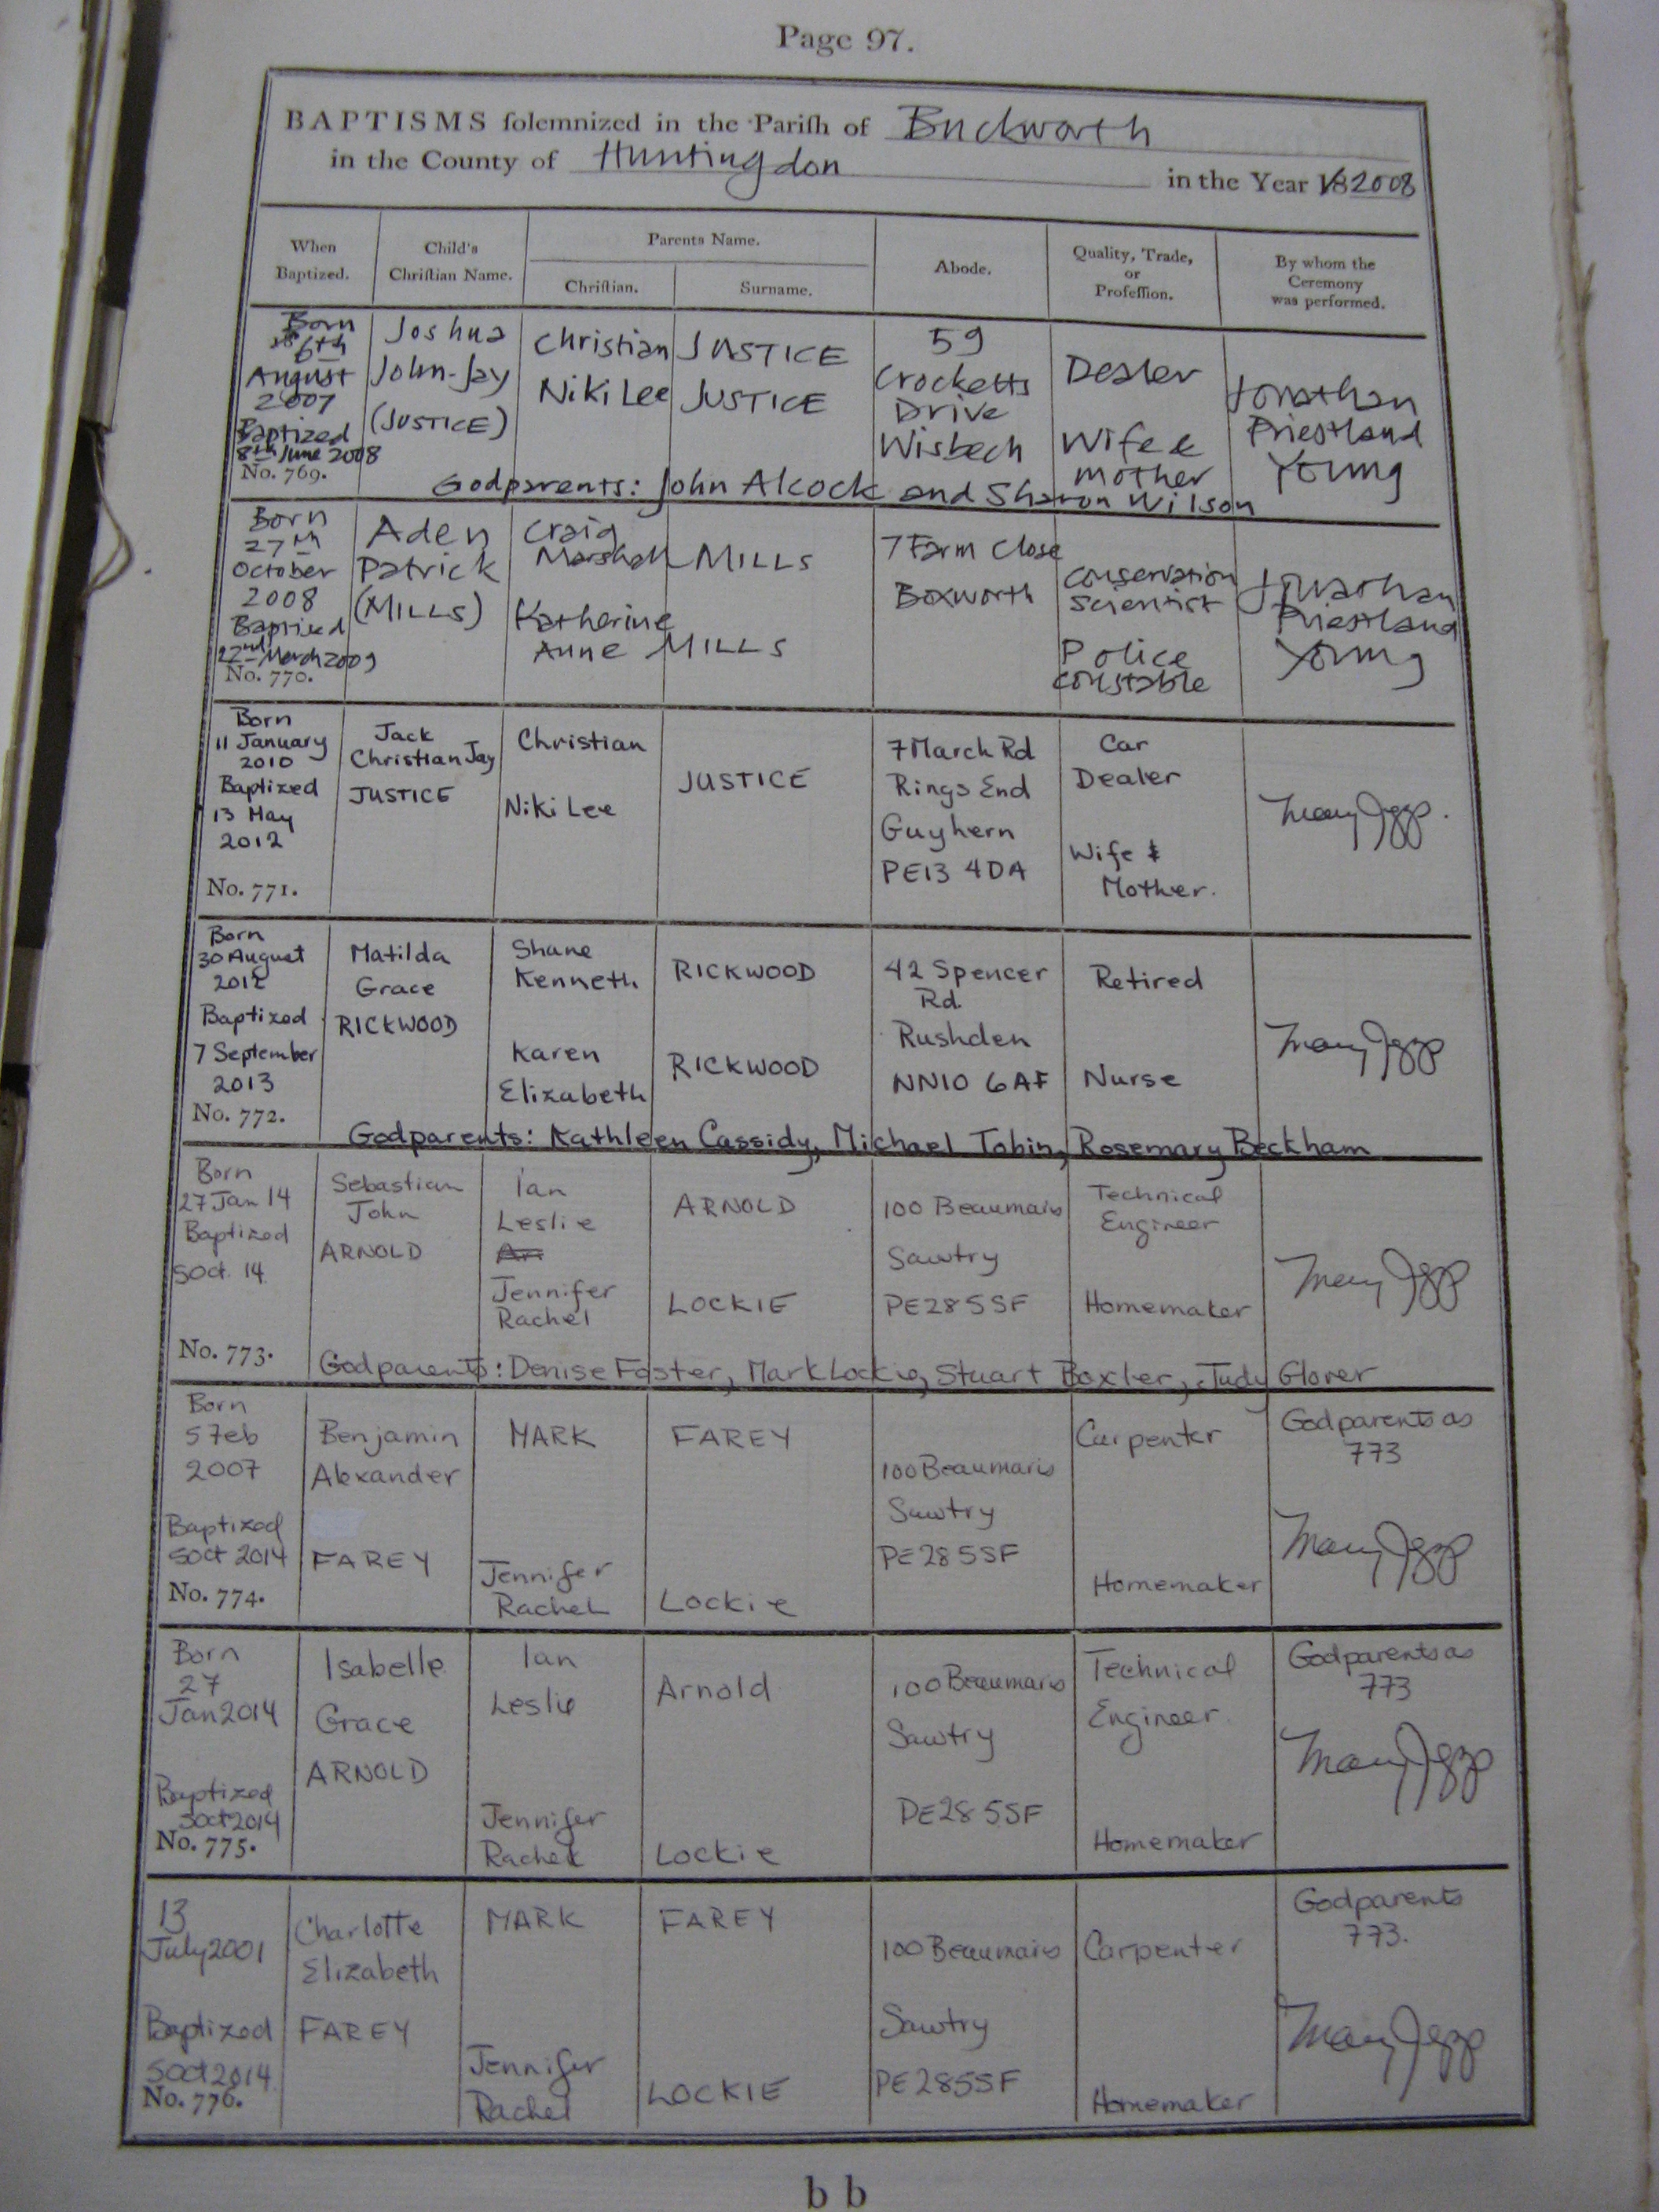 Page 97.
BAPTISMS solemnized in the Parish of Buckworth
in the County of Huntingdon in the Year 18 2008
When Baptized.
Child's Christian Name.
Parents Name.
Christian.
Surname.
Abode.
Quality, Trade, or Profession.
By whom the Ceremony was performed.
Born
6th
August
2007
Baptized
8th June 2008
No. 769.
Joshua
John-Jay
(JUSTICE)
Christian JUSTICE
Niki Lee JUSTICE
59
Crocketts
Drive
Wisbech
Dealer
Wife &
mother
Jonathan
Priestland
Young
Godparents: John Alcock and Sharon Wilson
Born
27th
October
2008
Baptized
22nd March 2009
No. 770.
Aden
Patrick
(MILLS)
Craig
Marshall MILLS
Katherine
Anne MILLS
7 Farm Close
Boxworth
Conservation
Scientist
Police
Constable
Jonathan
Priestland
Young
Born
11 January
2010
Baptized
13 May
2012
No. 771.
Jack
Christian Jay
JUSTICE
Christian
Niki Lee
JUSTICE
7 March Rd
Rings End
Guyhern
PE13 4DA
Car
Dealer
Wife &
Mother.
Mary Jepp.
Born
30 August
2012
Baptized
7 September
2013
No. 772.
Matilda
Grace
RICKWOOD
Shane
Kenneth
RICKWOOD
Karen
Elizabeth
RICKWOOD
42 Spencer
Rd.
Rushden
NN10 6AF
Retired
Nurse
Mary Jepp
Godparents: Kathleen Cassidy, Michael Tobin, Rosemary Beckham
Born
27 Jan 14
Baptized
5 Oct. 14
No. 773.
Sebastian
John
ARNOLD
Ian
Leslie
ARNOLD
Jennifer
Rachel
LOCKIE
100 Beaumaris
Sawtry
PE28 5SF
Technical
Engineer
Homemaker
Mary Jepp
Godparents: Denise Foster, Mark Lockie, Stuart Boxler, Judy Glover
Born
5 Feb
2007
Baptized
5 Oct 2014
No. 774.
Benjamin
Alexander
FAREY
MARK
FAREY
Jennifer
Rachel
Lockie
100 Beaumaris
Sawtry
PE28 5SF
Carpenter
Homemaker
Godparents as
773
Mary Jepp
Born
27
Jan 2014
Baptized
5 Oct 2014
No. 775.
Isabelle
Grace
ARNOLD
Ian
Leslie
Arnold
Jennifer
Rachel
Lockie
100 Beaumaris
Sawtry
PE28 5SF
Technical
Engineer.
Homemaker
Godparents as
773
Mary Jepp
13
July 2001
Baptized
5 Oct 2014
No. 776.
Charlotte
Elizabeth
FAREY
MARK
FAREY
Jennifer
Rachel
LOCKIE
100 Beaumaris
Sawtry
PE28 5SF
Carpenter
Homemaker
Godparents
773.
Mary Jepp
b b